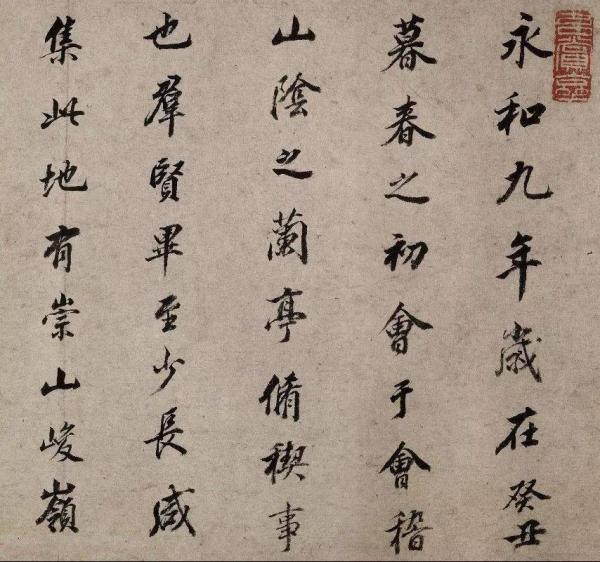 永和九年歲在癸丑
暮春之初會于會稽
山陰之蘭亭脩稧事
也羣賢畢至少長咸
集此地有崇山峻嶺